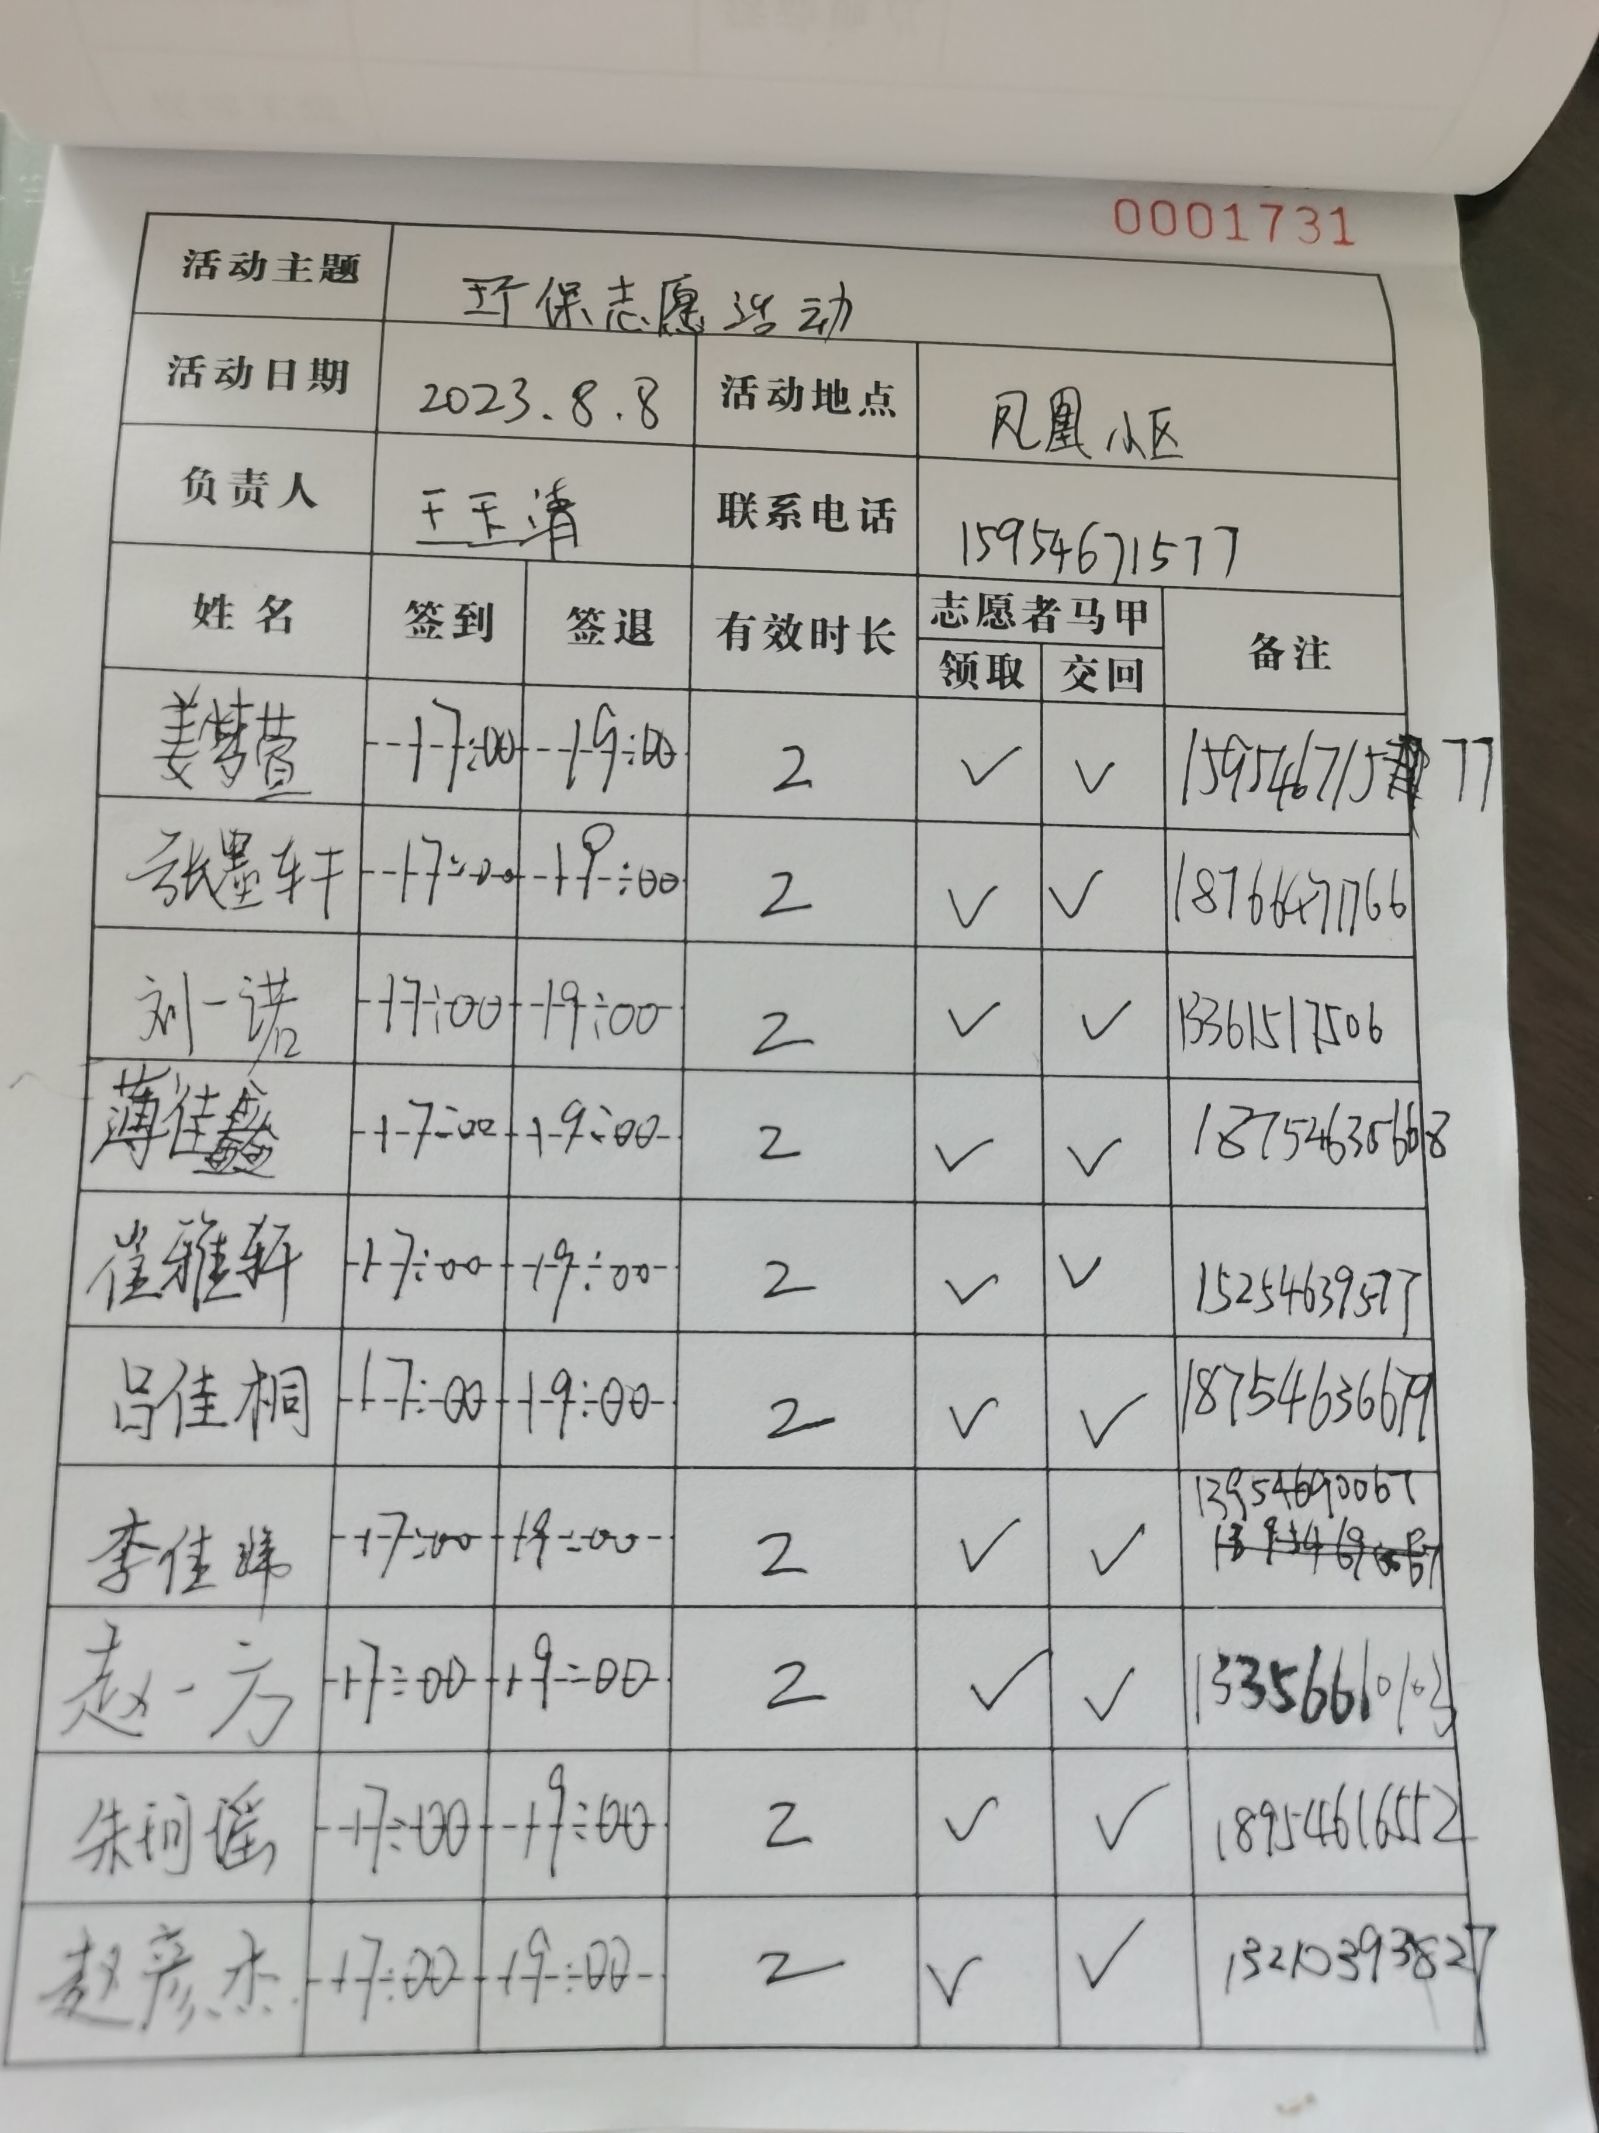 0001731
活动主题 环保志愿活动
活动日期 2023.8.8 活动地点 凤凰小区
负责人 王玉清 联系电话 15954671577
姓名 签到 签退 有效时长 志愿者马甲 备注
领取 交回
姜梦萱 17:00 19:00 2 ✓ ✓ 159546715 77
张墨轩 17:00 19:00 2 ✓ ✓ 18766471766
刘一诺 17:00 19:00 2 ✓ ✓ 13361517506
薄佳鑫 17:00 19:00 2 ✓ ✓ 18754635668
崔雅轩 17:00 19:00 2 ✓ ✓ 15254639577
吕佳桐 17:00 19:00 2 ✓ ✓ 18754636679
13954690067
李佳 17:00 19:00 2 ✓ ✓
赵一方 17:00 19:00 2 ✓ ✓ 13356610103
朱珂瑶 17:00 19:00 2 ✓ ✓ 18954616552
赵彦杰 17:00 19:00 2 ✓ ✓ 13210393827